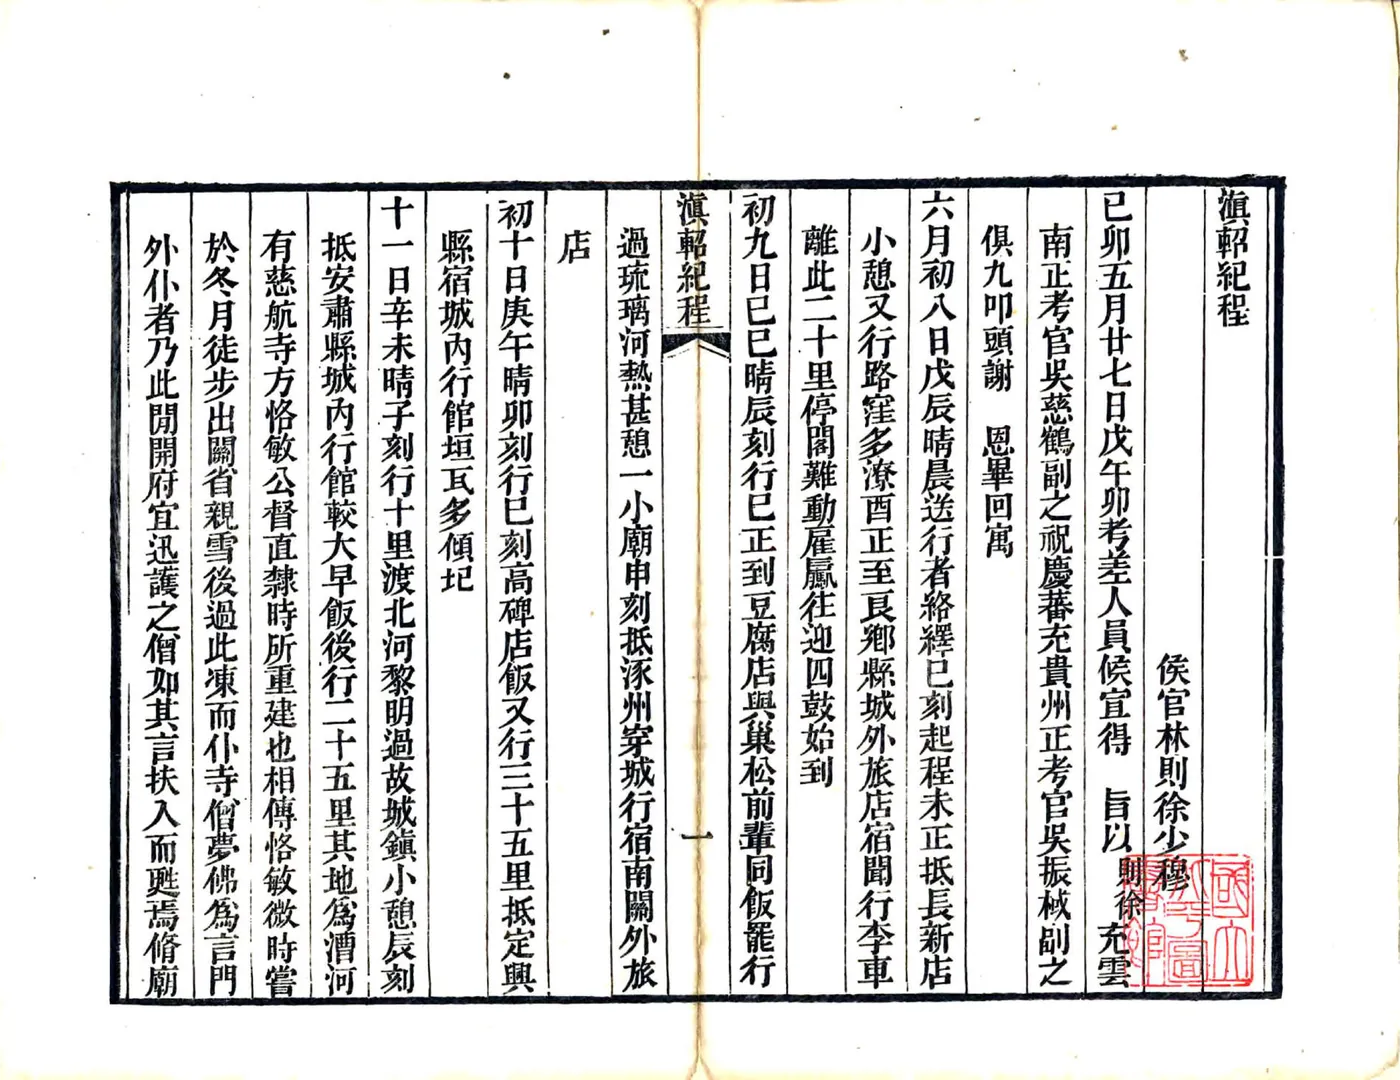 滇軺紀程
侯官林則徐少穆
己卯五月廿七日戊午卯考差人員候宣得　旨以則徐充雲
南正考官吳慈鶴副之祝慶蕃充貴州正考官吳振棫副之
俱九叩頭謝　恩畢回寓
六月初八日戊辰晴晨送行者絡繹巳刻起程未正抵長新店
小憩又行路窪多潦酉正至良鄉縣城外旅店宿聞行李車
離此二十里停閣難動雇驘往迎四鼓始到
初九日己巳晴辰刻行巳正到豆腐店與巢松前輩同飯罷行
滇軺紀程
一
過琉璃河熱甚憩一小廟申刻抵涿州穿城行宿南關外旅
店
初十日庚午晴卯刻行巳刻高碑店飯又行三十五里抵定興
縣宿城內行館垣瓦多傾圮
十一日辛未晴子刻行十里渡北河黎明過故城鎭小憩辰刻
抵安肅縣城內行館較大早飯後行二十五里其地爲漕河
有慈航寺方恪敏公督直隸時所重建也相傳恪敏微時嘗
於冬月徒步出關省親雪後過此凍而仆寺僧夢佛爲言門
外仆者乃此閒開府宜迅護之僧如其言扶入而甦焉脩廟
國立北平圖書館